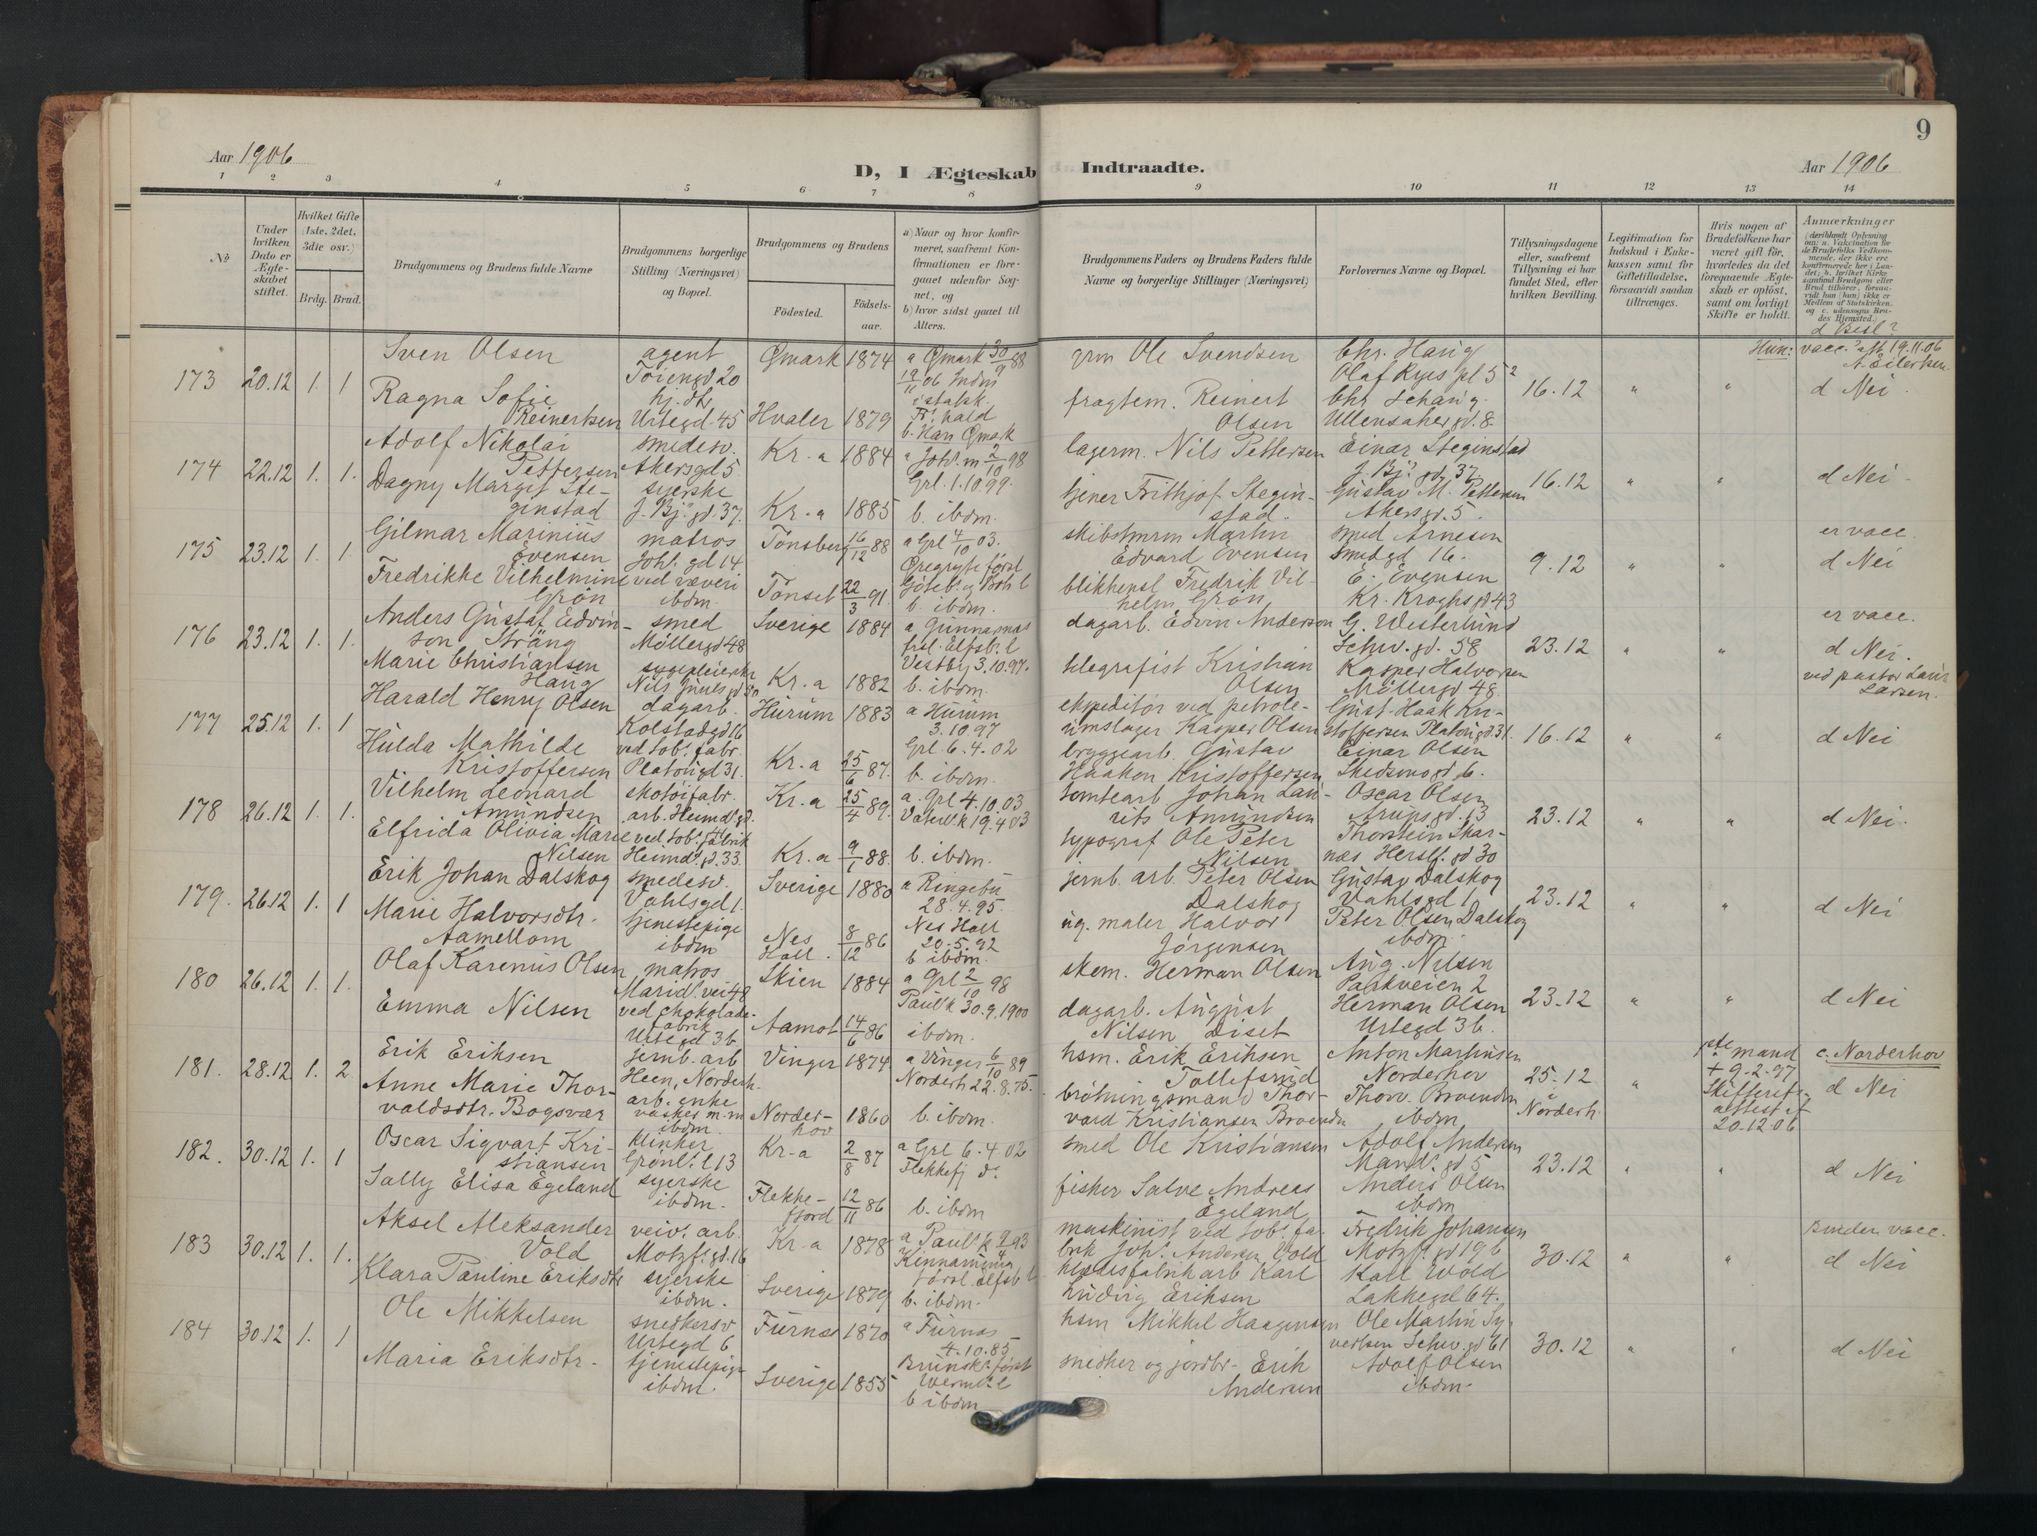 Aar 1906
D, I Ægteskab Indtraadte.
Aar 1906
9
1 2 3 4 5 6 7 8 9 10 11 12 13 14
№
Under hvilken Dato er Ægteskabet stiftet.
Hvilket Gifte (1ste, 2det, 3die osv.)
Brdg. Brud.
Brudgommens og Brudens fulde Navne
Brudgommens borgerlige Stilling (Næringsvei) og Bopæl.
Brudgommens og Brudens
Födested.
Födselsaar.
a) Naar og hvor konfirmeret, saafremt Konfirmationen er foregaaet udenfor Sognet, og
b) hvor sidst gaaet til Alters.
Brudgommens Faders og Brudens Faders fulde Navne og borgerlige Stillinger (Næringsvei)
Forlovernes Navne og Bopæl.
Tillysningsdagene eller, saafremt Tillysning ei har fundet Sted, efter hvilken Bevilling.
Legitimation for Indskud i Enkekassen samt for Giftetilladelse, forsaavidt saadan tiltrænges.
Hvis nogen af Brudefolkene har været gift før, hvorledes da det foregaaende Ægteskab er opløst, samt om lovligt Skifte er holdt.
Anmærkninger (deriblandt Oplysning om: a. Vaccination for de Brudefolks Vedkommende, der ikke ere konfirmerede her i Landet; b. hvilket Kirkesamfund Brudgom eller Brud tilhører, forsaavidt han (hun) ikke er Medlem af Statskirken. og c. udensogns Brudes Hjemsted.)
d Besl?
173 20.12 1. 1
Sven Olsen
agent Tøiengd 20
Ømark 1874
a Ømark 30/9 88
Ragna Sofie Reinertsen
hj. dtr Urtegd. 45
Hvaler 1879
19/11 06 Indm i statsk. Fr. hald
b. Han Ømark
grm Ole Svendsen
fragtem. Reinert Olsen
Chr. Haug Olaf Ryes pl 5²
Chr. Schaug. Ullensakergd. 8.
16.12 " "
Hun: vacc. att 19.11.06 A. Eilertsen
d Nei
174 22.12 1. 1.
Adolf Nikolai Pettersen
smedesv. Akersgd 5
Kr.a 1884
a Joh. m 2/10 98
Dagny Margit Steginstad
syerske J. Bj. gd. 37.
Kr.a 1885
Grl. 1.10.99.
b. ibdm.
lagerm. Nils Pettersen
tjener Frithjof Steginstad.
Einar Steginstad J. Bj. gd. 37.
Gustav M. Pettersen Akersgd. 5.
16.12 " "
d Nei
175 23.12 1. 1.
Gilmar Marinius Evensen
matros Joh. gd 14
Tønsberg 16/12 88
a Grl 4/10 03.
Fredrikke Vilhelmine Grøn
ved væveri ibdm.
Tønset 22/3 91
b. ibdm.
skibstmrm Martin Edvard Evensen
blikkensl Fredrik Vilhelm Grøn
smed Arnesen Smedgd 16.
E. Evensen Kr. Kroghsgd 43
9.12 " "
er vacc.
d Nei
176 23.12 1. 1.
Anders Gustaf Edvinson Sträng
smed Møllergd 48
Sverige 1884
a Gunnarsnäs frsl. Elfsb. l
Marie Christiansen Haug
sygepleierske Nils Juels gd 30
Kr.a 1882
Vestby 3.10.97.
b. ibdm.
dagarb. Edvin Anderson
telegrafist Kristian Olsen
G. Westerlund Schw. gd. 58
Kasper Halvorsen Møllergd 48.
23.12 " "
er vacc.
d Nei.
ved pastor Laur. Larsen.
177 25.12 1. 1
Harald Henry Olsen
dagarb. Kolstadgd 16
Hurum 1883
a Hurum 3.10 97
Hulda Mathilde Kristoffersen
ved tob. fabr. Platougd 31.
Kr.a 25/6 87.
Grl. 6.4.02
b. ibdm.
ekspeditør ved petroleumslager Kasper Olsen
bryggearb Gustav Haakon Kristoffersen
Gust. Haak Kristoffersen Platougd. 31.
Einar Olsen Skedsmogd. 6.
16.12 " "
d Nei
178 26.12 1. 1.
Vilhelm Leonard Amundsen
skotøifabr. arb. Heimd. gd.
Kr.a 25/4 89.
a. Grl 4.10.03
Elfrida Olivia Marie Nilsen
ved tob. fabrik Heimd. gd. 33.
Kr.a 9/1 88.
Vaterl. k 19.4 03
b. ibdm.
tomtearb Johan Laurits Amundsen
typograf Ole Peter Nilsen
Oscar Olsen Arupsgd. 13
Thorstein Skarnæs Herslf. gd 30
23.12 " "
d Nei.
179. 26.12 1. 1
Erik Johan Dalskog
smedesv. Vahlsgd 1.
Sverige 1880
a Ringebu 28.4.95.
Marie Halvorsdtr. Aamellom
tjenestepige ibdm
Nes Hall. 8/12 86
Nes Hall 20.5.92
b ibdm.
jernb. arb. Peter Olsen Dalskog
ug. maler Halvor Jørgensen
Gustav Dalskog Vahlsgd 1
Peter Olsen Dalskog ibdm.
23.12 " "
d Nei
180 26.12 1. 1.
Olaf Karenus Olsen
matros Marid. vei 48
Skien 1884
a Grl 2/10 98
Emma Nilsen
ved chokoladefabrik Urtegd 36
Aamot 14/6 86
Paul. k 30.9.1900
ibdm.
skom. Herman Olsen
dagarb. August Nilsen Diset
Aug. Nilsen Parkveien 2
Herman Olsen Urtegd 36.
23.12 " "
d Nei
181. 28.12 1. 2.
Erik Eriksen
jernb. arb Heen, Norderh.
Vinger 1874
a Vinger 6/10 89
Anne Marie Thorvaldsdtr. Bogsvær
arb. enke vasker m.m ibdm.
Norderhov 1860
Norderh. 22.8.75.
b. ibdm.
hsm. Erik Eriksen Tollefsrud
Thorvard Kristiansen Braenden
Anton Martinsen Norderhov
Thorv. Braenden ibdm
25.12 a Norderh.
"
1ste mand + 9.2.97 Skifteretsattest af 20.12.06
c. Norderhov
d Nei
182. 30.12 1. 1
Oscar Sigvart Kristiansen
klinker Grønl. l 13
Kr-a 2/8 87
a Grl 6.4.02
Sally Elisa Egeland
syerske ibdm.
Flekkefjord 12/11 86
Flekkefj do
b. ibdm
smed Ole Kristiansen
fisker Salve Andreas Egeland
Adolf Andersen Mand. gd 5
Anders Olsen ibdm
23.12 " "
d Nei
183 30.12 1. 1.
Aksel Aleksander Vold
veiv. arb. Motzf. gd. 16
Kr.a 1878
a Paul. k 2/4 93
Klara Pauline Eriksdtr
syerske ibdm.
Sverige 1879
b. ibdm.
maskinist ved tob. fabrik Joh. Andersen Vold
klædesfabrikarb Karl Ludvig Eriksen
Fredrik Johansen Motzf. gd 19 b
Karl Wold Lakkegd 64.
30.12 " "
Bruden vacc.
d Nei
184 30.12 1. 1
Ole Mikkelsen
snedkersv Urtegd 6
Furnes 1870
a Furnes 4.10.85
Maria Eriksdtr.
tjenestepige ibdm.
Sverige 1855
b ibdm
hsm Mikkel Haagensen
snedker og jordbr. Erik Andersen
Ole Martin Syversen Schw. gd 61
Adolf Olsen ibdm.
30.12 " "
d Nei